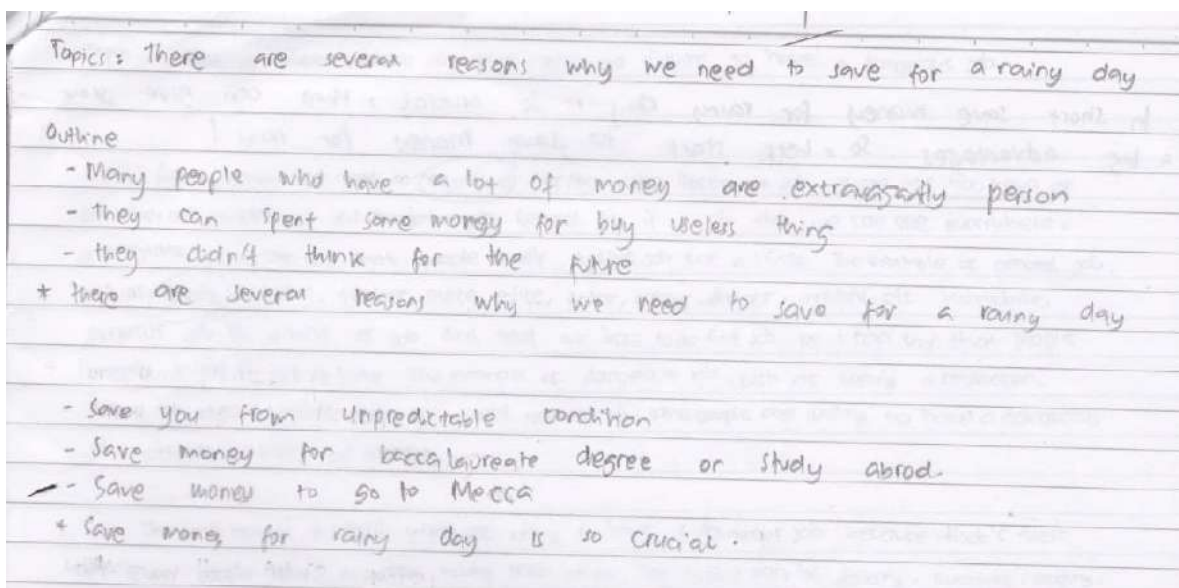 Topics : There are several reasons why we need to save for a rainy day
Outline
- Many people who have a lot of money are extravagantly person
- They can spent some money for buy useless thing
- they didn't think for the future
* there are several reasons why we need to save for a rainy day
- Save you from unpredictable condition
- Save money for baccalaureate degree or study abrod.
- Save money to go to Mecca
* Save money for rainy day is so crucial.